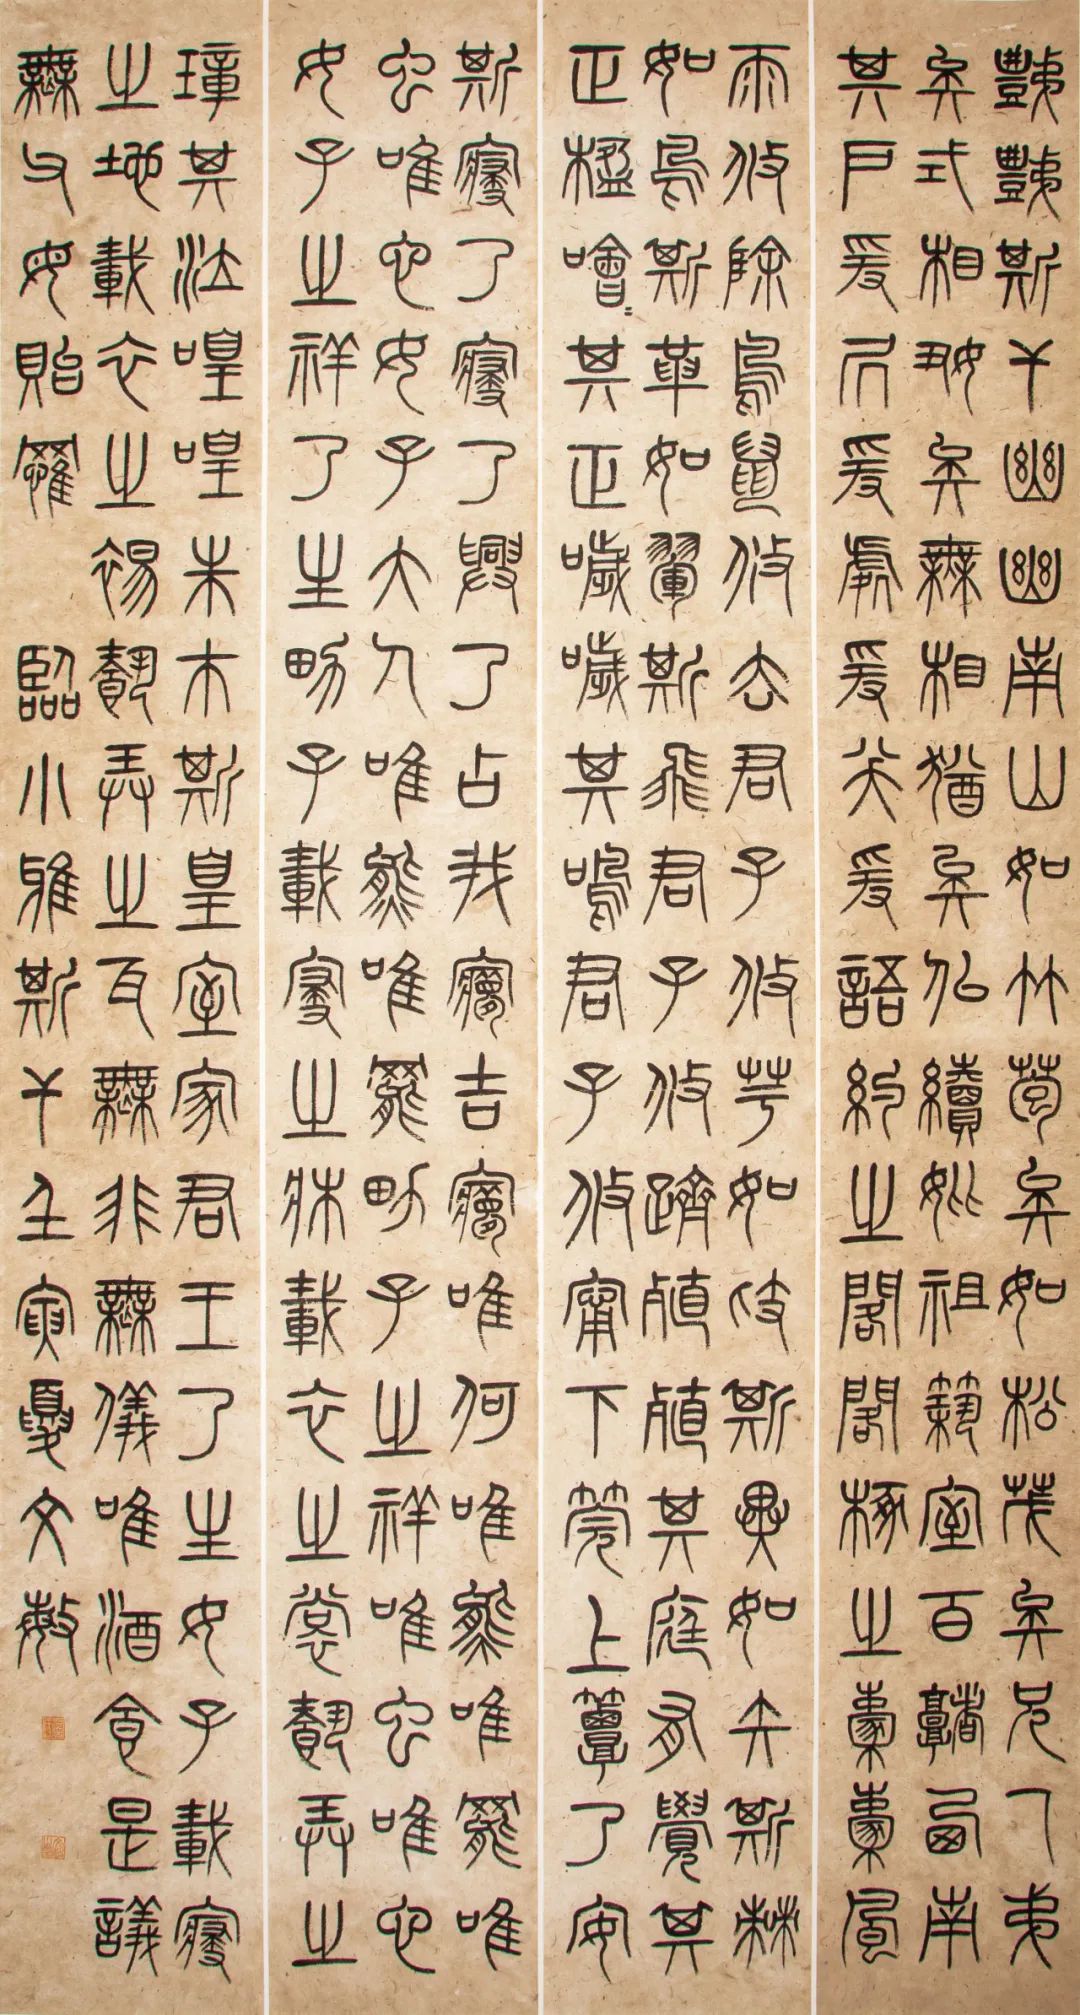 豑豑斯干幽幽南山如竹苞矣如松茂矣兄及弟
矣式相好矣無相猶矣佀續妣祖築室百堵西南
其戶爰凥爰處爰笑爰語約之閣閣椓之橐橐風
雨攸除鳥鼠攸去君子攸芋如跂斯翼如矢斯棘
如鳥斯革如翬斯飛君子攸躋殖殖其庭有覺其
正楹噲=其正噦噦其鳴君子攸寧下莞上簟乃安
斯寢乃寢乃興乃占我夢吉夢唯何唯熊唯羆唯
虫唯它女子大人唯熊唯羆男子之祥唯虫唯它
女子之祥乃生男子載寢之牀載衣之裳載弄之
璋其泣喤喤朱巿斯皇室家君王乃生女子載寢
之地載衣之裼載弄之瓦無非無儀唯酒食是議
無父母貽罹 臨小雅斯干壬寅夏文